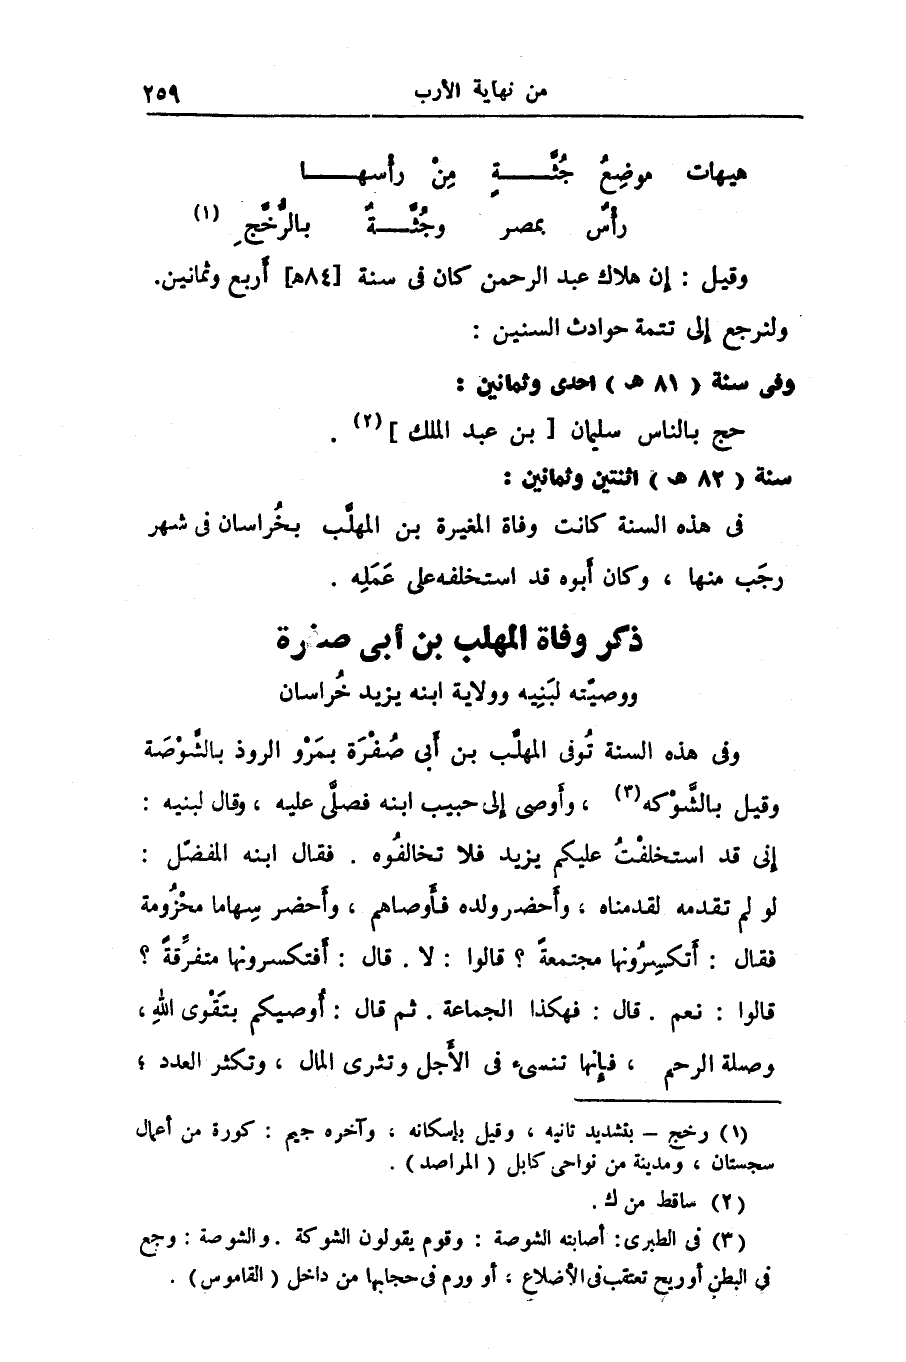 من نهاية الأرب ٢٥٩
هيهات موضِعُ جُثَّـــــةٍ مِنْ رأسهــــــا
رأسٌ بمصر وجُثَّـــةٌ بالرُّخَّجِ (١)
وقيل : إن هلاك عبد الرحمن كان فى سنة [٨٤ه] أربع وثمانين.
ولنرجع إلى تتمة حوادث السنين :
وفى سنة ( ٨١ هـ ) احدى وثمانين :
حج بالناس سليمان [ بن عبد الملك ] (٢) .
سنة ( ٨٢ هـ ) اثنتين وثمانين :
فى هذه السنة كانت وفاة المغيرة بن المهلَّب بخُراسان فى شهر
رجَب منها ، وكان أبوه قد استخلفه على عَمَلِه .
ذكر وفاة المهلب بن أبى صفرة
ووصيّته لبَنِيه وولاية ابنه يزيد خُراسان
وفى هذه السنة تُوفى المهلَّب بن أبى صُفْرَة بمَرْو الروذ بالشَّوْصَة
وقيل بالشَّوْكه (٣) ، وأوصى إلى حبيب ابنه فصلَّى عليه ، وقال لبنيه :
إنى قد استخلفْتُ عليكم يزيد فلا تخالفُوه . فقال ابنه المفضّل :
لو لم تقدمه لقدمناه ، وأَحضر ولده فأَوصاهم ، وأَحضر سِهاما محْزُومة
فقال : أَتكسِرُونها مجتمعةً ؟ قالوا : لا . قال : أفتكسرونها متفرِّقةً ؟
قالوا : نعم . قال : فهكذا الجماعة . ثم قال : أُوصيكم بتَقْوى اللهِ ،
وصلة الرحم ، فإِنها تنسىء فى الأَجل وتثرى المال ، وتكثر العدد ؛
(١) رخج – بتشديد ثانيه ، وقيل بإسكانه ، وآخره جيم : كورة من أعمال
سجستان ، ومدينة من نواحى كابل ( المراصد ) .
(٢) ساقط من ك .
(٣) فى الطبرى: أصابته الشوصة : وقوم يقولون الشوكة . والشوصة : وجع
في البطن أو ريح تعتقب فى الأضلاع ، أو ورم فى حجابها من داخل ( القاموس ) .